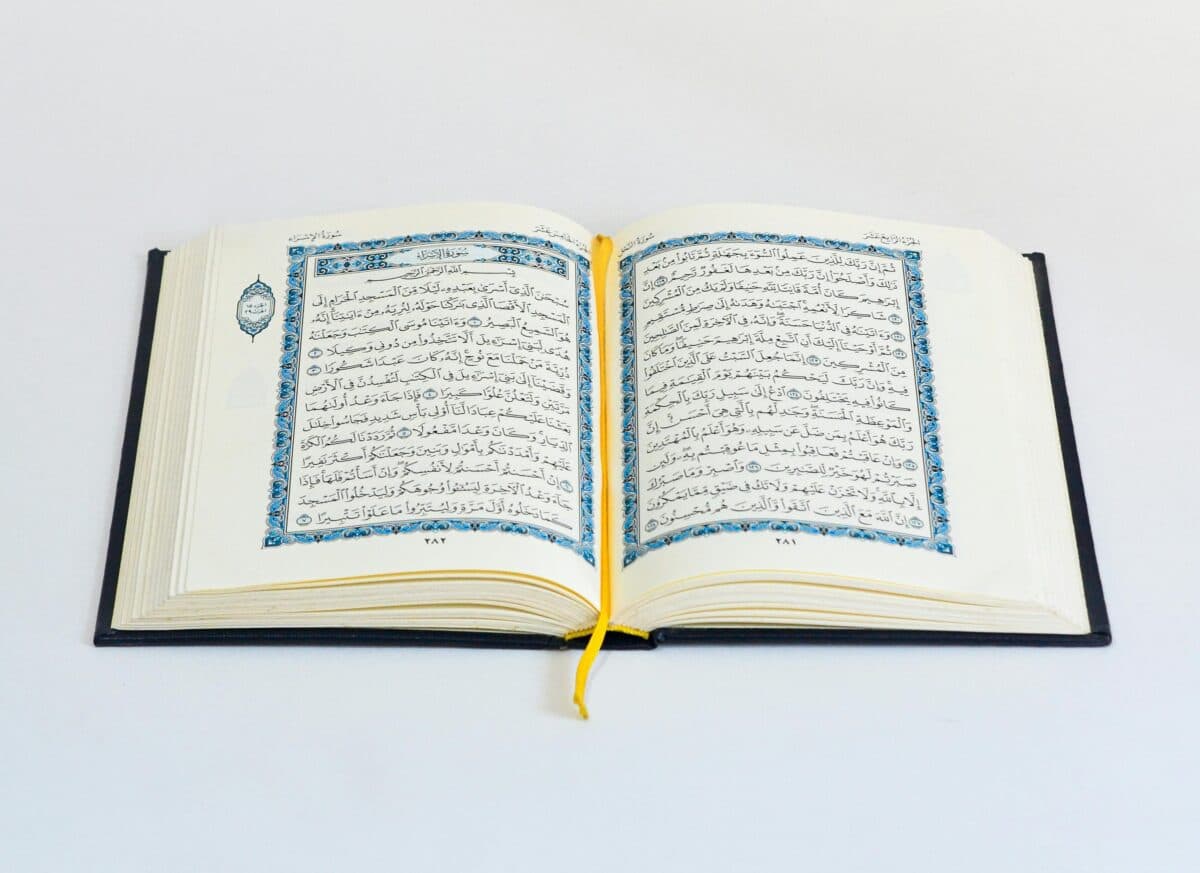 الجزء الرابع عشر
سورة النحل
ثُمَّ إِنَّ رَبَّكَ لِلَّذِينَ عَمِلُوا۟ ٱلسُّوٓءَ بِجَهَٰلَةٍ ثُمَّ تَابُوا۟ مِنۢ بَعْدِ
ذَٰلِكَ وَأَصْلَحُوٓا۟ إِنَّ رَبَّكَ مِنۢ بَعْدِهَا لَغَفُورٌ رَّحِيمٌ ١١٩ إِنَّ
إِبْرَٰهِيمَ كَانَ أُمَّةً قَانِتًا لِّلَّهِ حَنِيفًا وَلَمْ يَكُ مِنَ ٱلْمُشْرِكِينَ
١٢٠ شَاكِرًا لِّأَنْعُمِهِ ٱجْتَبَىٰهُ وَهَدَىٰهُ إِلَىٰ صِرَٰطٍ مُّسْتَقِيمٍ
١٢١ وَءَاتَيْنَٰهُ فِى ٱلدُّنْيَا حَسَنَةً وَإِنَّهُۥ فِى ٱلْءَاخِرَةِ لَمِنَ ٱلصَّٰلِحِينَ
١٢٢ ثُمَّ أَوْحَيْنَآ إِلَيْكَ أَنِ ٱتَّبِعْ مِلَّةَ إِبْرَٰهِيمَ حَنِيفًا وَمَا كَانَ
مِنَ ٱلْمُشْرِكِينَ ١٢٣ إِنَّمَا جُعِلَ ٱلسَّبْتُ عَلَى ٱلَّذِينَ ٱخْتَلَفُوا۟
فِيهِ وَإِنَّ رَبَّكَ لَيَحْكُمُ بَيْنَهُمْ يَوْمَ ٱلْقِيَٰمَةِ فِيمَا
كَانُوا۟ فِيهِ يَخْتَلِفُونَ ١٢٤ ٱدْعُ إِلَىٰ سَبِيلِ رَبِّكَ بِٱلْحِكْمَةِ
وَٱلْمَوْعِظَةِ ٱلْحَسَنَةِ وَجَٰدِلْهُم بِٱلَّتِى هِىَ أَحْسَنُ إِنَّ
رَبَّكَ هُوَ أَعْلَمُ بِمَن ضَلَّ عَن سَبِيلِهِۦ وَهُوَ أَعْلَمُ بِٱلْمُهْتَدِينَ
١٢٥ وَإِنْ عَاقَبْتُمْ فَعَاقِبُوا۟ بِمِثْلِ مَا عُوقِبْتُم بِهِۦ وَلَئِن
صَبَرْتُمْ لَهُوَ خَيْرٌ لِّلصَّٰبِرِينَ ١٢٦ وَٱصْبِرْ وَمَا صَبْرُكَ
إِلَّا بِٱللَّهِ وَلَا تَحْزَنْ عَلَيْهِمْ وَلَا تَكُ فِى ضَيْقٍ مِّمَّا يَمْكُرُونَ
١٢٧ إِنَّ ٱللَّهَ مَعَ ٱلَّذِينَ ٱتَّقَوا۟ وَّٱلَّذِينَ هُم مُّحْسِنُونَ ١٢٨
٢٨١
سورة الإسراء
سورة الإسراء
بِسْمِ ٱللَّهِ ٱلرَّحْمَٰنِ ٱلرَّحِيمِ
سُبْحَٰنَ ٱلَّذِىٓ أَسْرَىٰ بِعَبْدِهِۦ لَيْلًا مِّنَ ٱلْمَسْجِدِ ٱلْحَرَامِ إِلَى
ٱلْمَسْجِدِ ٱلْأَقْصَا ٱلَّذِى بَٰرَكْنَا حَوْلَهُۥ لِنُرِيَهُۥ مِنْ ءَايَٰتِنَآ إِنَّهُۥ
هُوَ ٱلسَّمِيعُ ٱلْبَصِيرُ ١ وَءَاتَيْنَا مُوسَى ٱلْكِتَٰبَ وَجَعَلْنَٰهُ
هُدًى لِّبَنِىٓ إِسْرَٰٓءِيلَ أَلَّا تَتَّخِذُوا۟ مِن دُونِى وَكِيلًا ٢
ذُرِّيَّةَ مَنْ حَمَلْنَا مَعَ نُوحٍ إِنَّهُۥ كَانَ عَبْدًا شَكُورًا ٣
وَقَضَيْنَآ إِلَىٰ بَنِىٓ إِسْرَٰٓءِيلَ فِى ٱلْكِتَٰبِ لَتُفْسِدُنَّ فِى ٱلْأَرْضِ
مَرَّتَيْنِ وَلَتَعْلُنَّ عُلُوًّا كَبِيرًا ٤ فَإِذَا جَآءَ وَعْدُ أُولَىٰهُمَا
بَعَثْنَا عَلَيْكُمْ عِبَادًا لَّنَآ أُو۟لِى بَأْسٍ شَدِيدٍ فَجَاسُوا۟ خِلَٰلَ
ٱلدِّيَارِ وَكَانَ وَعْدًا مَّفْعُولًا ٥ ثُمَّ رَدَدْنَا لَكُمُ ٱلْكَرَّةَ
عَلَيْهِمْ وَأَمْدَدْنَٰكُم بِأَمْوَٰلٍ وَبَنِينَ وَجَعَلْنَٰكُمْ أَكْثَرَ نَفِيرًا
٦ إِنْ أَحْسَنتُمْ أَحْسَنتُمْ لِأَنفُسِكُمْ وَإِنْ أَسَأْتُمْ فَلَهَا فَإِذَا
جَآءَ وَعْدُ ٱلْءَاخِرَةِ لِيَسُۥٓـُٔوا۟ وُجُوهَكُمْ وَلِيَدْخُلُوا۟ ٱلْمَسْجِدَ
كَمَا دَخَلُوهُ أَوَّلَ مَرَّةٍ وَلِيُتَبِّرُوا۟ مَا عَلَوْا۟ تَتْبِيرًا ٧
٢٨٢
الجزء ١٥
الحزب ٢٩